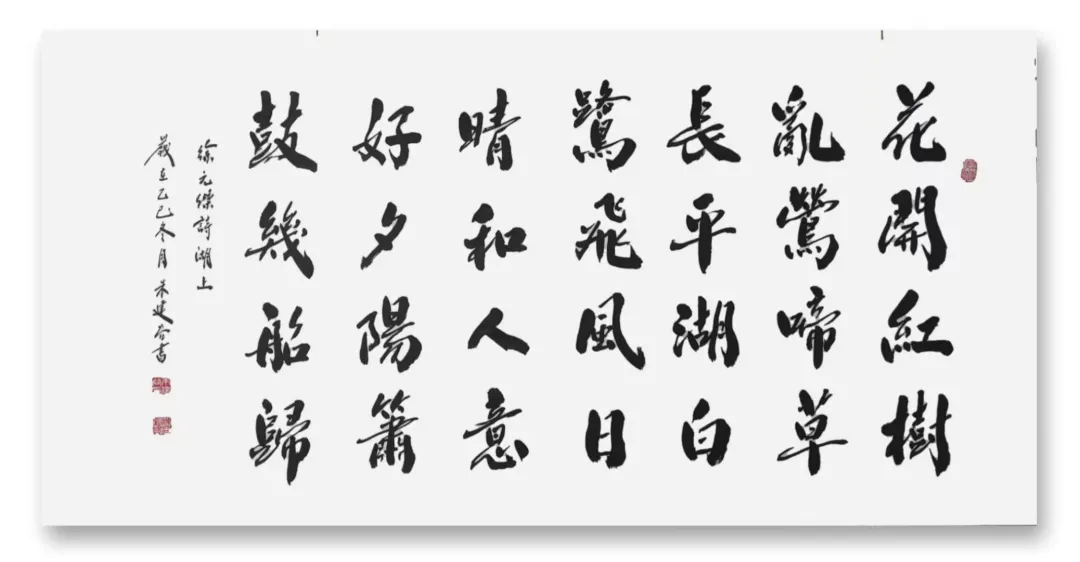 花開紅樹
亂鶯啼草
長平湖白
鷺飛風日
晴和人意
好夕陽簫
鼓幾船歸
徐元傑詩湖上
歲在乙巳冬月朱建合書